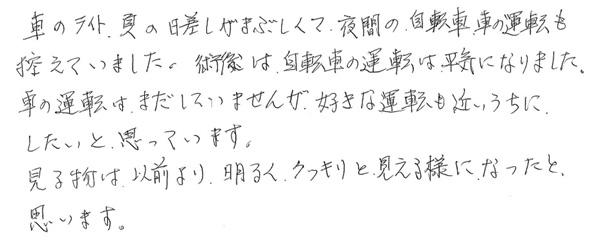 車のライト、夏の日差しがまぶしくて、夜間の、自転車、車の運転も
控えていました。術後は、自転車の運転は、平気になりました。
車の運転は、まだしていませんが、好きな運転も近いうちに、
したいと、思っています。
見る物は、以前より、明るく、クッキリと、見える様に、なったと、
思います。